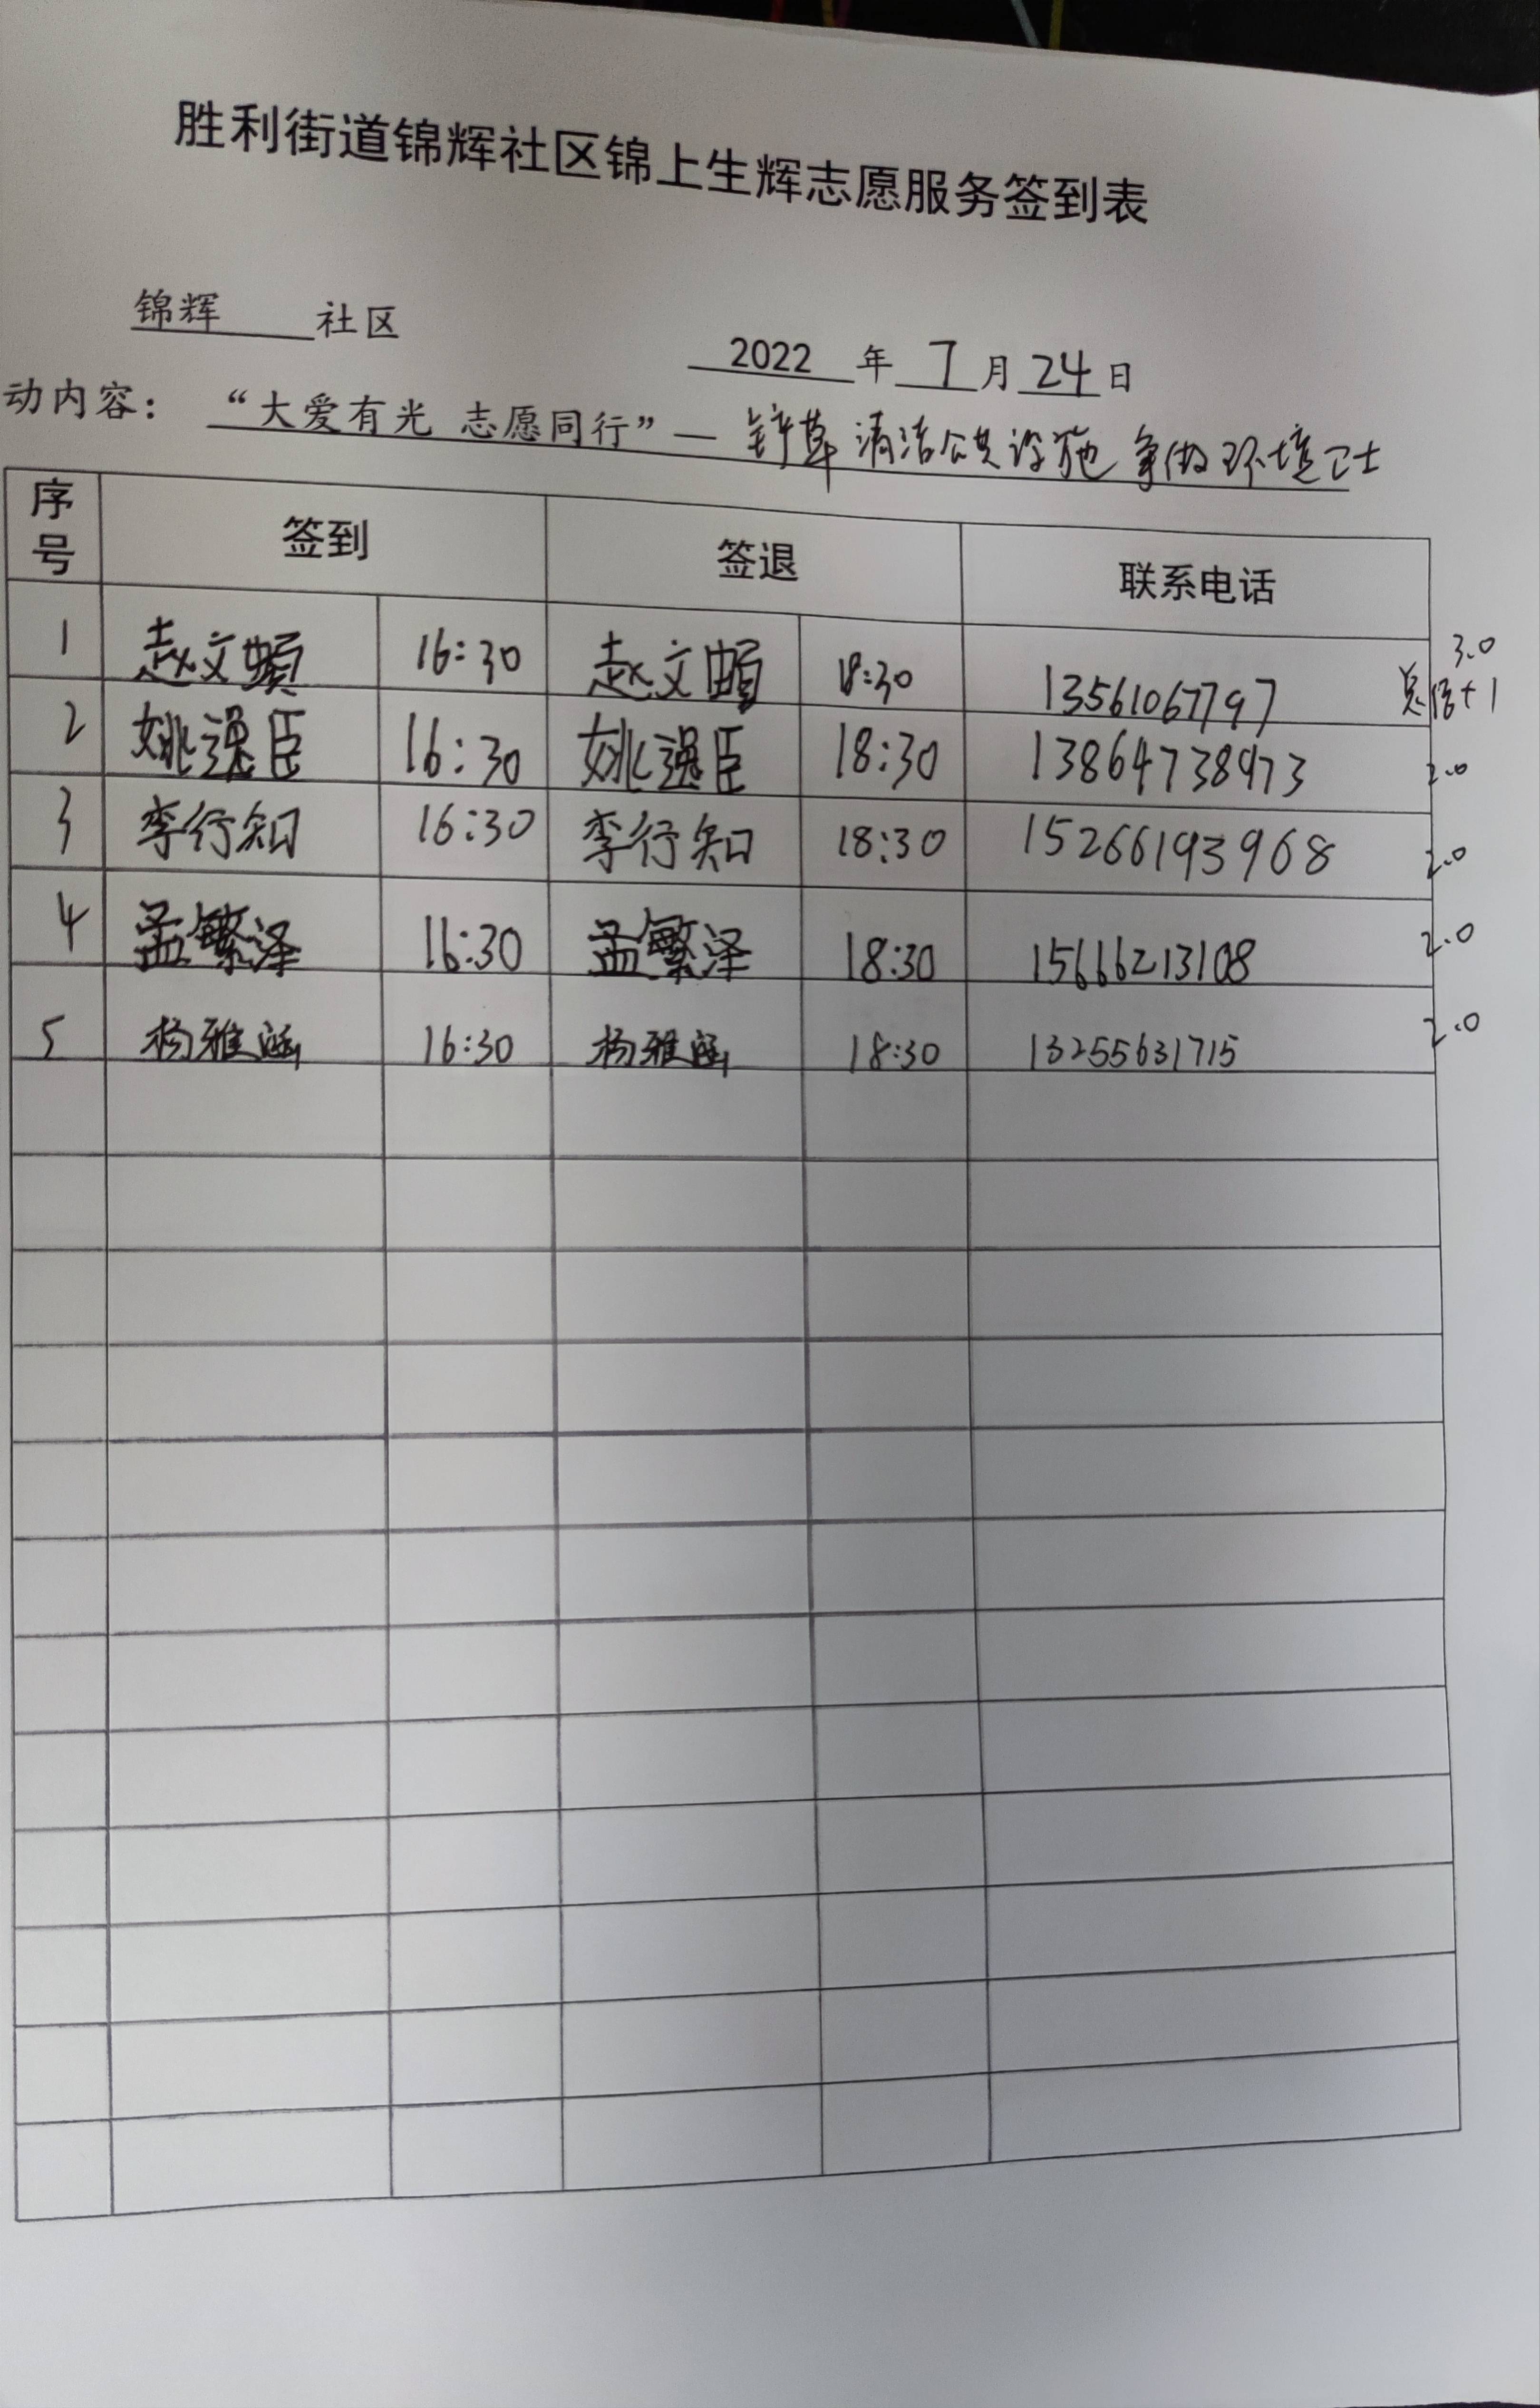 胜利街道锦辉社区锦上生辉志愿服务签到表
锦辉 社区
2022 年 7 月 24 日
动内容： “大爱有光 志愿同行” — 铲草 清洁公共设施 争做环境卫士
序号 签到 签退 联系电话
1 赵文 16:30 赵文 18:30 13561067797 3.0
+1
2 姚逸臣 16:30 姚逸臣 18:30 13864738973 2.0
3 李行知 16:30 李行知 18:30 15266193968 2.0
4 孟繁泽 16:30 孟繁泽 18:30 15666213108 2.0
5 杨雅涵 16:30 杨雅涵 18:30 13255631715 2.0